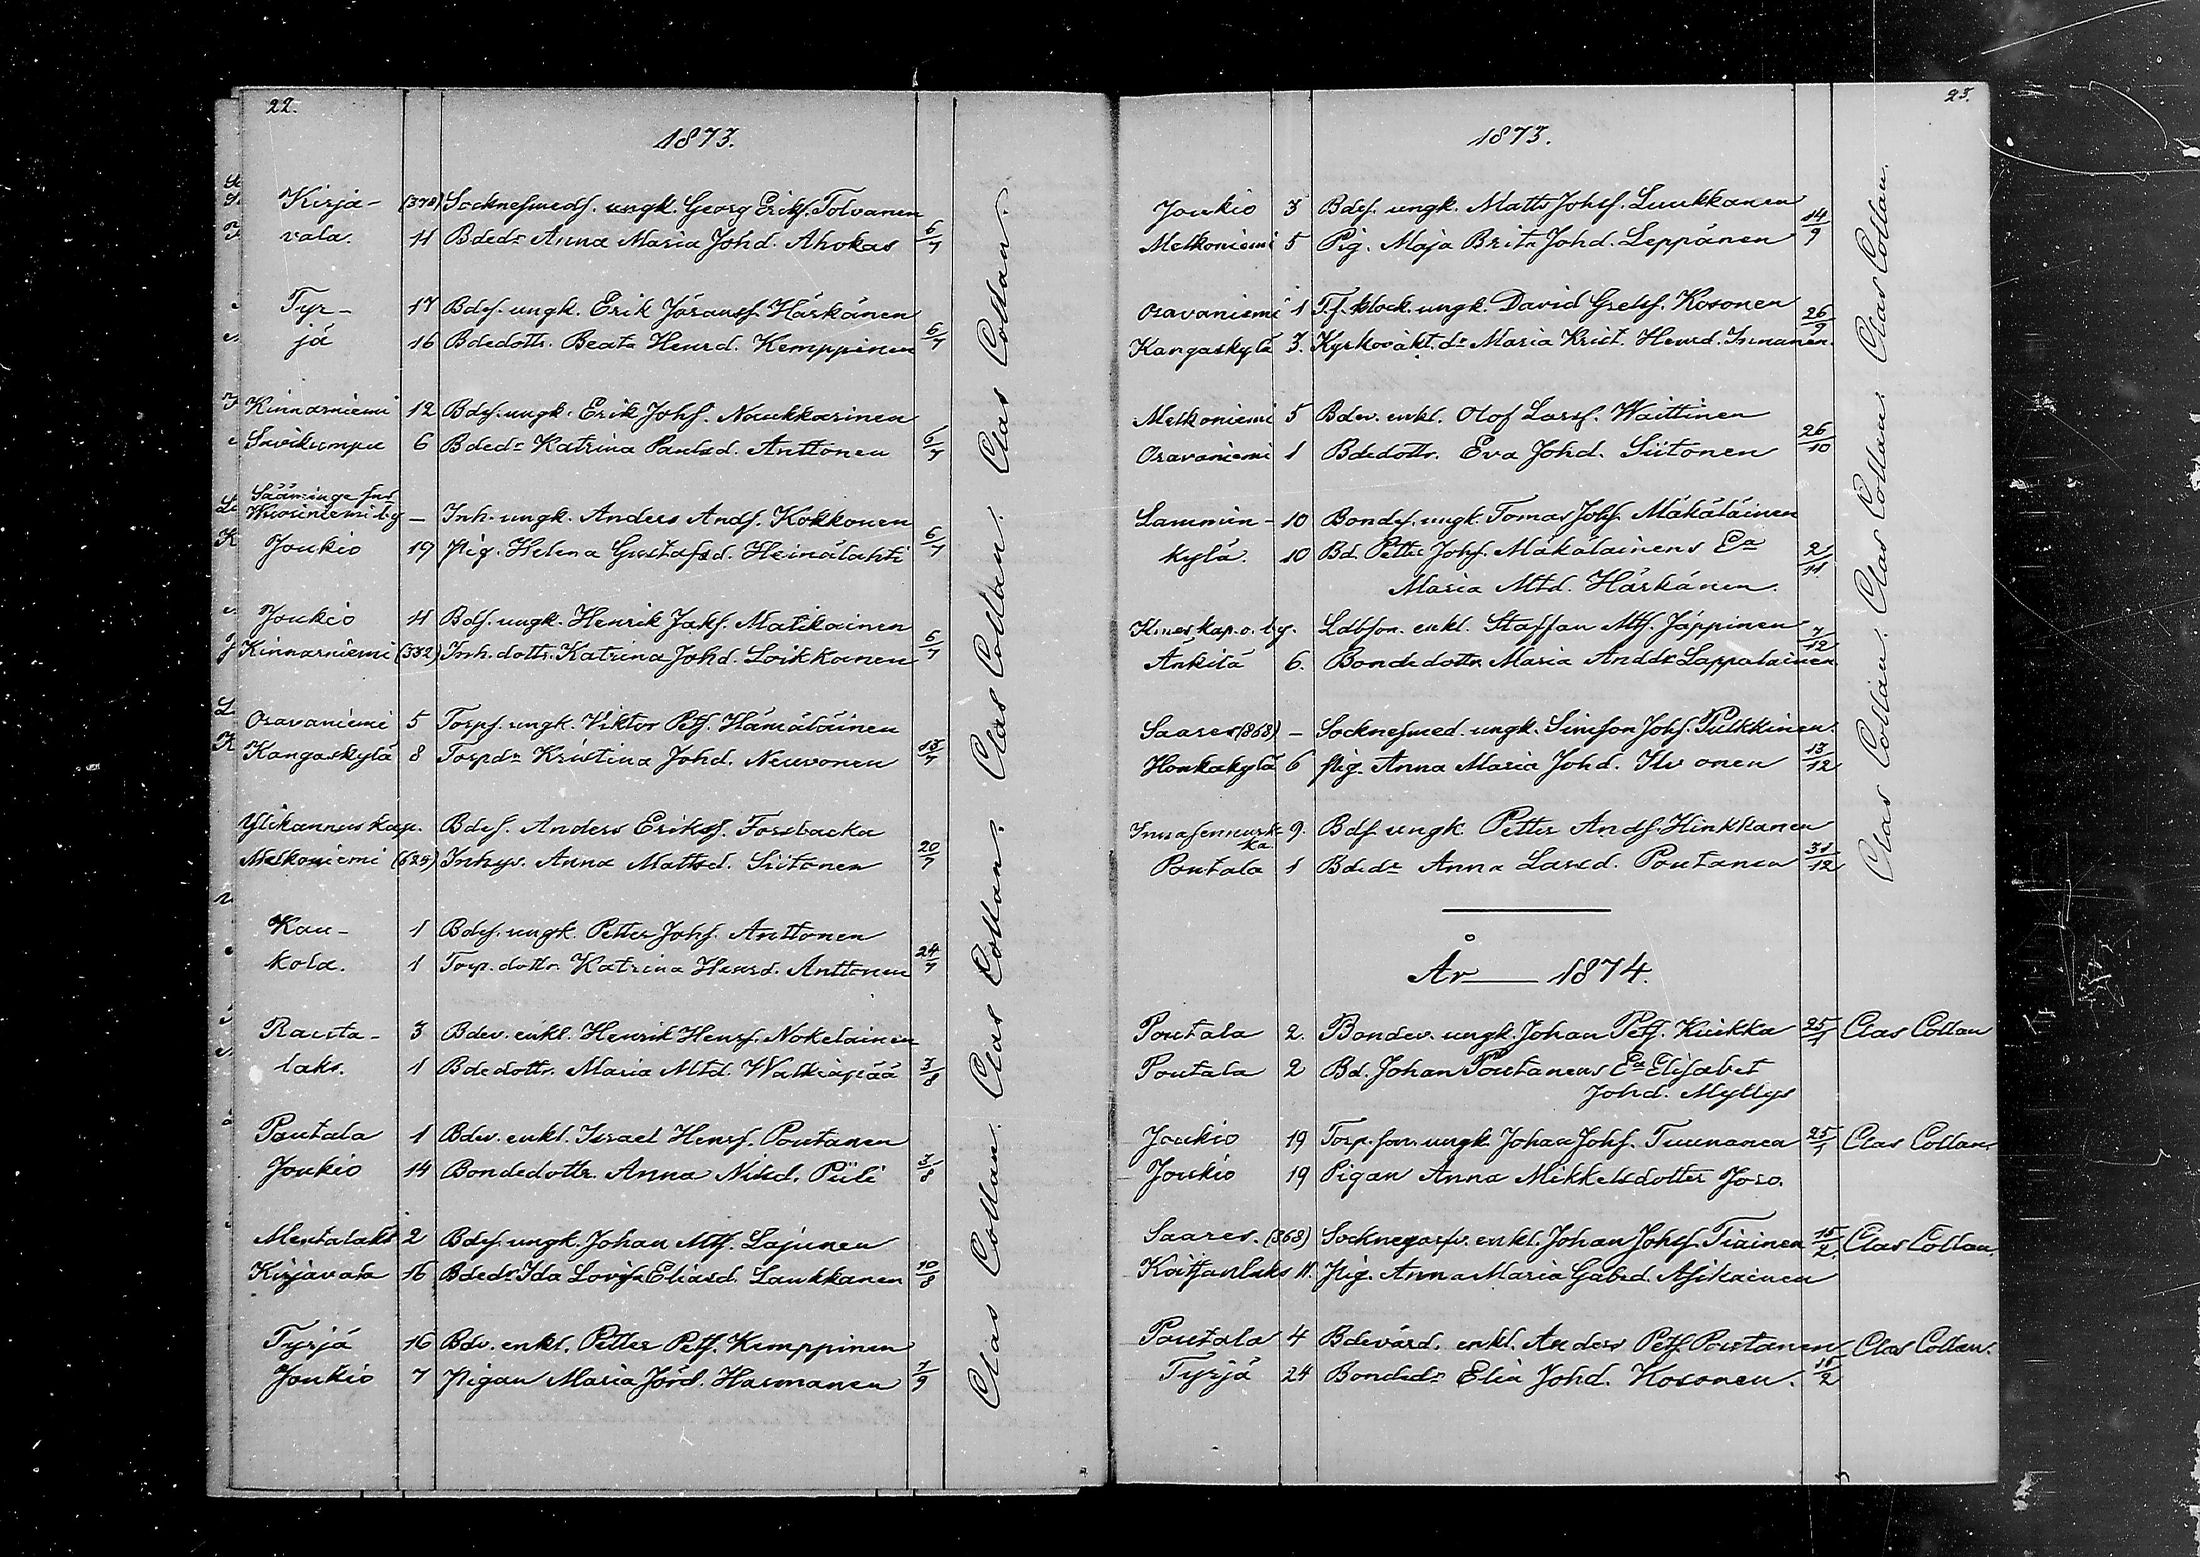 22.
1873.
Kirjä- (378) Socknesmeds. ungk. Georg Eriks. Tolvanen
vala. 11 Bdedr Anna Maria Johd. Ahokas 6/7
Tyr- 17 Bdes. ungk. Erik Göranss. Härkänen
jä 16 Bdedottr. Beata Henrd. Kemppinen 6/7
Kinnarniemi 12 Bdes. ungk. Erik Johs. Naukkarinen
Savikumpu 6 Bdedr Katrina Paulsd. Anttonen 6/7
Sääminge sn
Wuoriniemi by — Inh. ungk. Anders Ands. Kokkonen
Joukio 19 Pig. Helena Gustafsd. Heinälahti 6/7
Joukio 4 Bds. ungk. Henrik Jaks. Matikainen
Kinnarniemi (332) Inh. dottr. Katrina Johd. Loikkanen 6/7
Oravaniemi 5 Torps. ungk. Viktor Pets. Hämäläinen
Kangaskylä 8 Torpdr Kristina Johd. Neuvonen 13/7
Ylikannus kap. Bdes. Anders Erikss. Forsbacka
Melkoniemi (625) Inhys. Anna Mattsd. Siitonen 20/7
Kau- 1 Bdes. ungk. Petter Johs. Anttonen
kola. 1 Torp. dottr. Katrina Henrd. Anttonen 24/7
Rauta- 3 Bdev. enkl. Henrik Henrs. Nokelainen
laks. 1 Bdedottr. Maria Mtd. Walkiapää 3/8
Poutala 1 Bdev. enkl. Israel Henrs. Poutanen
Joukio 14 Bondedottr. Anna Nilsd. Piili 3/8
Mentalaks 2 Bdes. ungk. Johan Mts. Lajunen
Kirjavala 16 Bdedr Ida Lovisa Eliasd. Laukkanen 10/8
Tyrjä 16 Bdv. enkl. Petter Pets. Kemppinen
Joukio 7 Pigan Maria Jörd. Harmanen 7/9
Clas Collan. Clas Collan. Clas Collan. Clas Collan. Clas Collan. Clas Collan.
23.
1873.
Joukio 3 Bdes. ungk. Matts Johs. Luukkanen
Melkoniemi 5 Pig. Maja Brita Johd. Leppänen 14/9
Oravaniemi 1 T.f. klock. ungk. David Grels. Kosonen
Kangaskylä 3. Kyrkovakt. dr Maria Krist. Henrd. Immonen. 26/9
Melkoniemi 5 Bdev. enkl. Olof Larss. Waittinen
Oravaniemi 1 Bdedottr. Eva Johd. Siitonen 26/10
Lammin- 10 Bondes. ungk. Tomas Johs. Mäkäläinen
kylä. 10 Bd. Petter Johs. Mäkäläinens Ea 2/11
Maria Mtd. Härkänen.
kap. o. by. Ldbson. enkl. Staffan Mts. Jäppinen
Ankilä 6. Bondedottr. Maria Anddr Lappalainen 7/12
Saares (868) — Socknesmed. ungk. Simson Johs. Pulkkinen.
Honkakylä 6 Pig. Anna Maria Johd. Ilvonen 13/12
9. Bds. ungk. Petter Ands. Hinkkanen
Poutala 1 Bdedr Anna Larsd. Poutanen 31/12
Clas Collan. Clas Collan. Clas Collan. Clas Collan.
År 1874.
Poutala 2. Bondev. ungk. Johan Pets. Kuikka 25/1 Clas Collan
Poutala 2 Bd. Johan Poutanens Ea Elisabet
Johd. Myllys
Joukio 19 Torp. son. ungk. Johan Johs. Tuunanen 25/1 Clas Collan.
Joukio 19 Pigan Anna Mikkelsdotter Joro.
Saares. (868) enkl. Johan Johs. Tiainen 15/2 Clas Collan.
Koitsanlaks 11. Pig. Anna Maria Gabrd. Asikainen
Poutala 4 Bdevärd. enkl. Anders Pets. Poutanen Clas Collan.
Tyrjä 24 Bondedr Elin Johd. Kosonen. 15/2